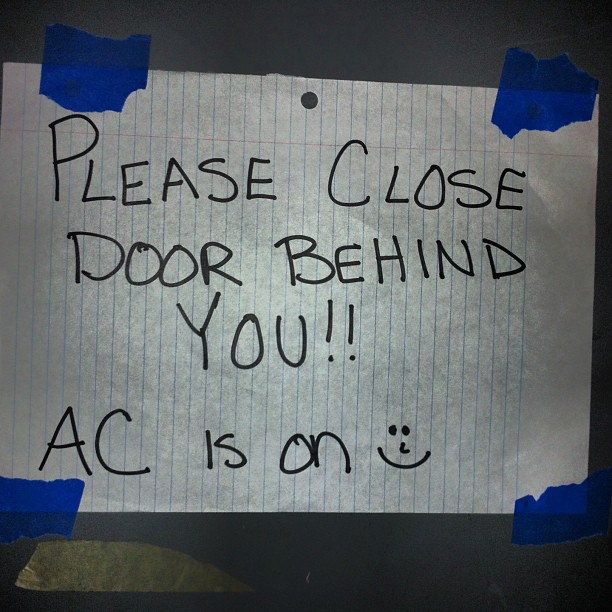 PLEASE CLOSE
DOOR BEHIND
YOU!!
AC is on